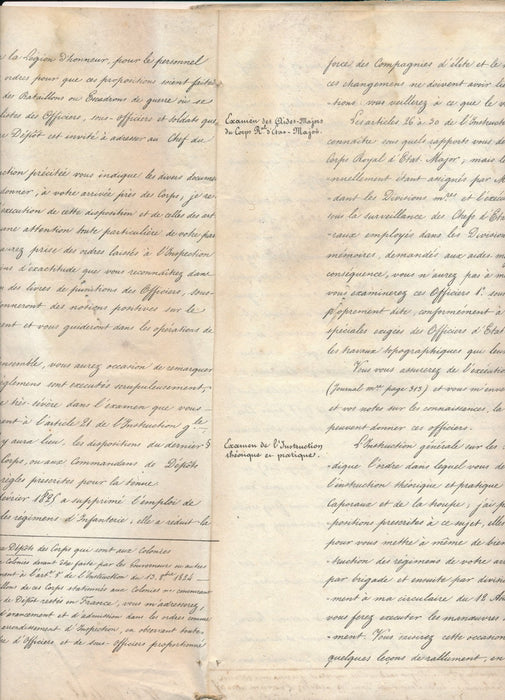 e la Légion d'honneur, pour le personnel
ordres pour que ces propositions soient faites
des Bataillons ou Escadrons de guerre ou se
listes des Officiers, sous-officiers et soldats que
e Dépôt est invité à adresser au Chef du
ction précitée vous indique les divers docume
donner, à votre arrivée près des Corps, je re
exécution de cette disposition et de celles des art
une attention toute particulière de votre par
aurez prise des ordres laissés à l'Inspection
ins d'exactitude que vous reconnaîtrez dans
en des livres de punitions des Officiers, sous-
onneront des notions positives sur le
ent et vous guideront dans les opérations de
ensemble, vous aurez occasion de remarquer
règlemens sont exécutés scrupuleusement,
très sévère dans l'examen que vous
ent à l'article 21 de l'Instruction gle
y aura lieu, les dispositions du dernier §
Corps, ou aux Commandans de Dépôts
règles prescrites pour la tenue
évrier 1825 a supprimé l'emploi de
les régimens d'Infanterie, elle a réduit la
e Dépôts des Corps qui sont aux Colonies
Colonies devant être faite par les Gouverneurs ou autres
ment à l'art. 8 de l'Instruction du 13. 1824
llons de ces Corps stationnés aux Colonies ne conservant
de Dépôt restés en France, vous m'adresserez,
d'avancement et d'admission dans les ordres comme
arrondissement d'Inspection, en observant toute
re d'Officiers et de sous-Officiers proportionné
Examen des Aides-Majors
du Corps Ral d'Etat-Major.
Examen de l'Instruction
théorique et pratique.
force des Compagnies d'élite et le
ces changemens ne doivent avoir lie
tions vous veillerez à ce que le v
Les articles 26 à 30 de l'Instruct
connaître sous quels rapports vous de
Corps Royal d'Etat-Major, mais l
nuellement étant assignés par M
dant les Divisions mres et l'exécu
sous la surveillance des Chefs d'Et
raux employés dans les Division
mémoires, demandés aux aides m
conséquence, vous n'aurez pas à m
vous examinerez ces Officiers 1° sous
proprement dite, conformément à
spéciales exigées des Officiers d'Etat
les travaux topographiques qui leur
Vous vous assurerez de l'exécution
(Journal mre page 313) et vous m'enve
et vos notes sur les connaissances, la
peuvent donner ces officiers.
L'Instruction générale sur les
dique l'ordre dans lequel vous de
l'instruction théorique et pratique
Caporaux et de la troupe; j'ai p
positions prescrites à ce sujet, elles
pour vous mettre à même de bien
truction des régimens de votre ar
par brigade et ensuite par divisi
ment à ma circulaire du 12 Au
vous ferez exécuter les manœuvres
ment. Vous saisirez cette occasion
quelques leçons de ralliement, en